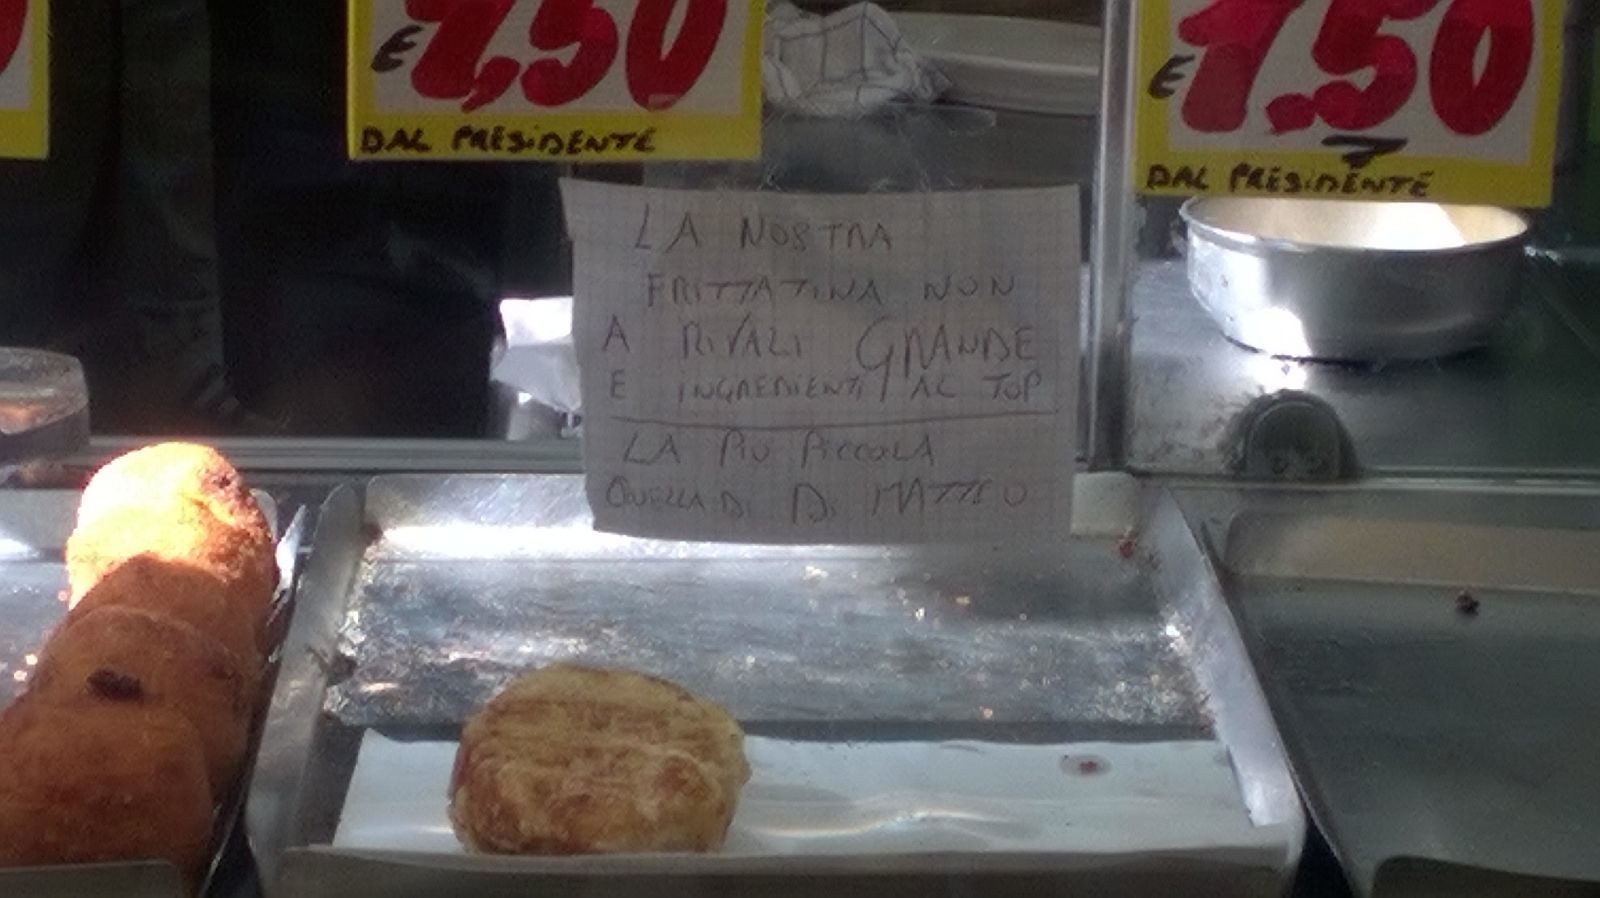 E 1,50
DAL PRESIDENTE
E 1.50
DAL PRESIDENTE
LA NOSTRA
FRITTATINA NON
A RIVALI GRANDE
E INGREDIENTI AL TOP
LA PIÙ PICCOLA
QUELLA DI DI MATTEO